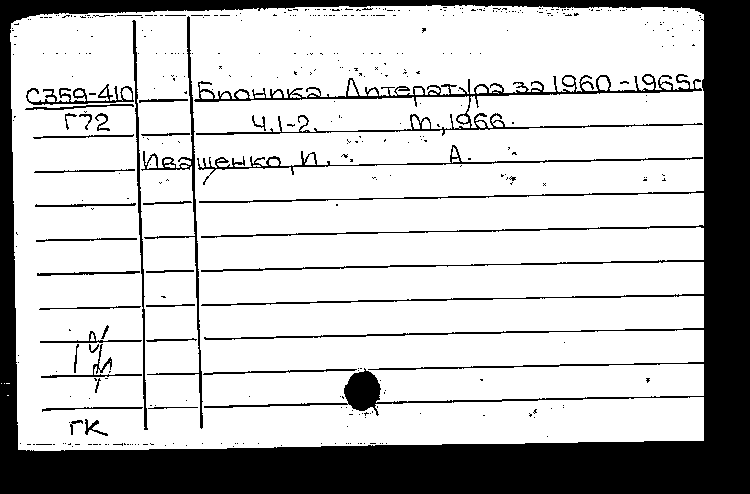 С359-410 Бионика. Литература за 1960-1965гг
Г72 Ч.1-2. М., 1966.
Иващенко, И. А.
ГК